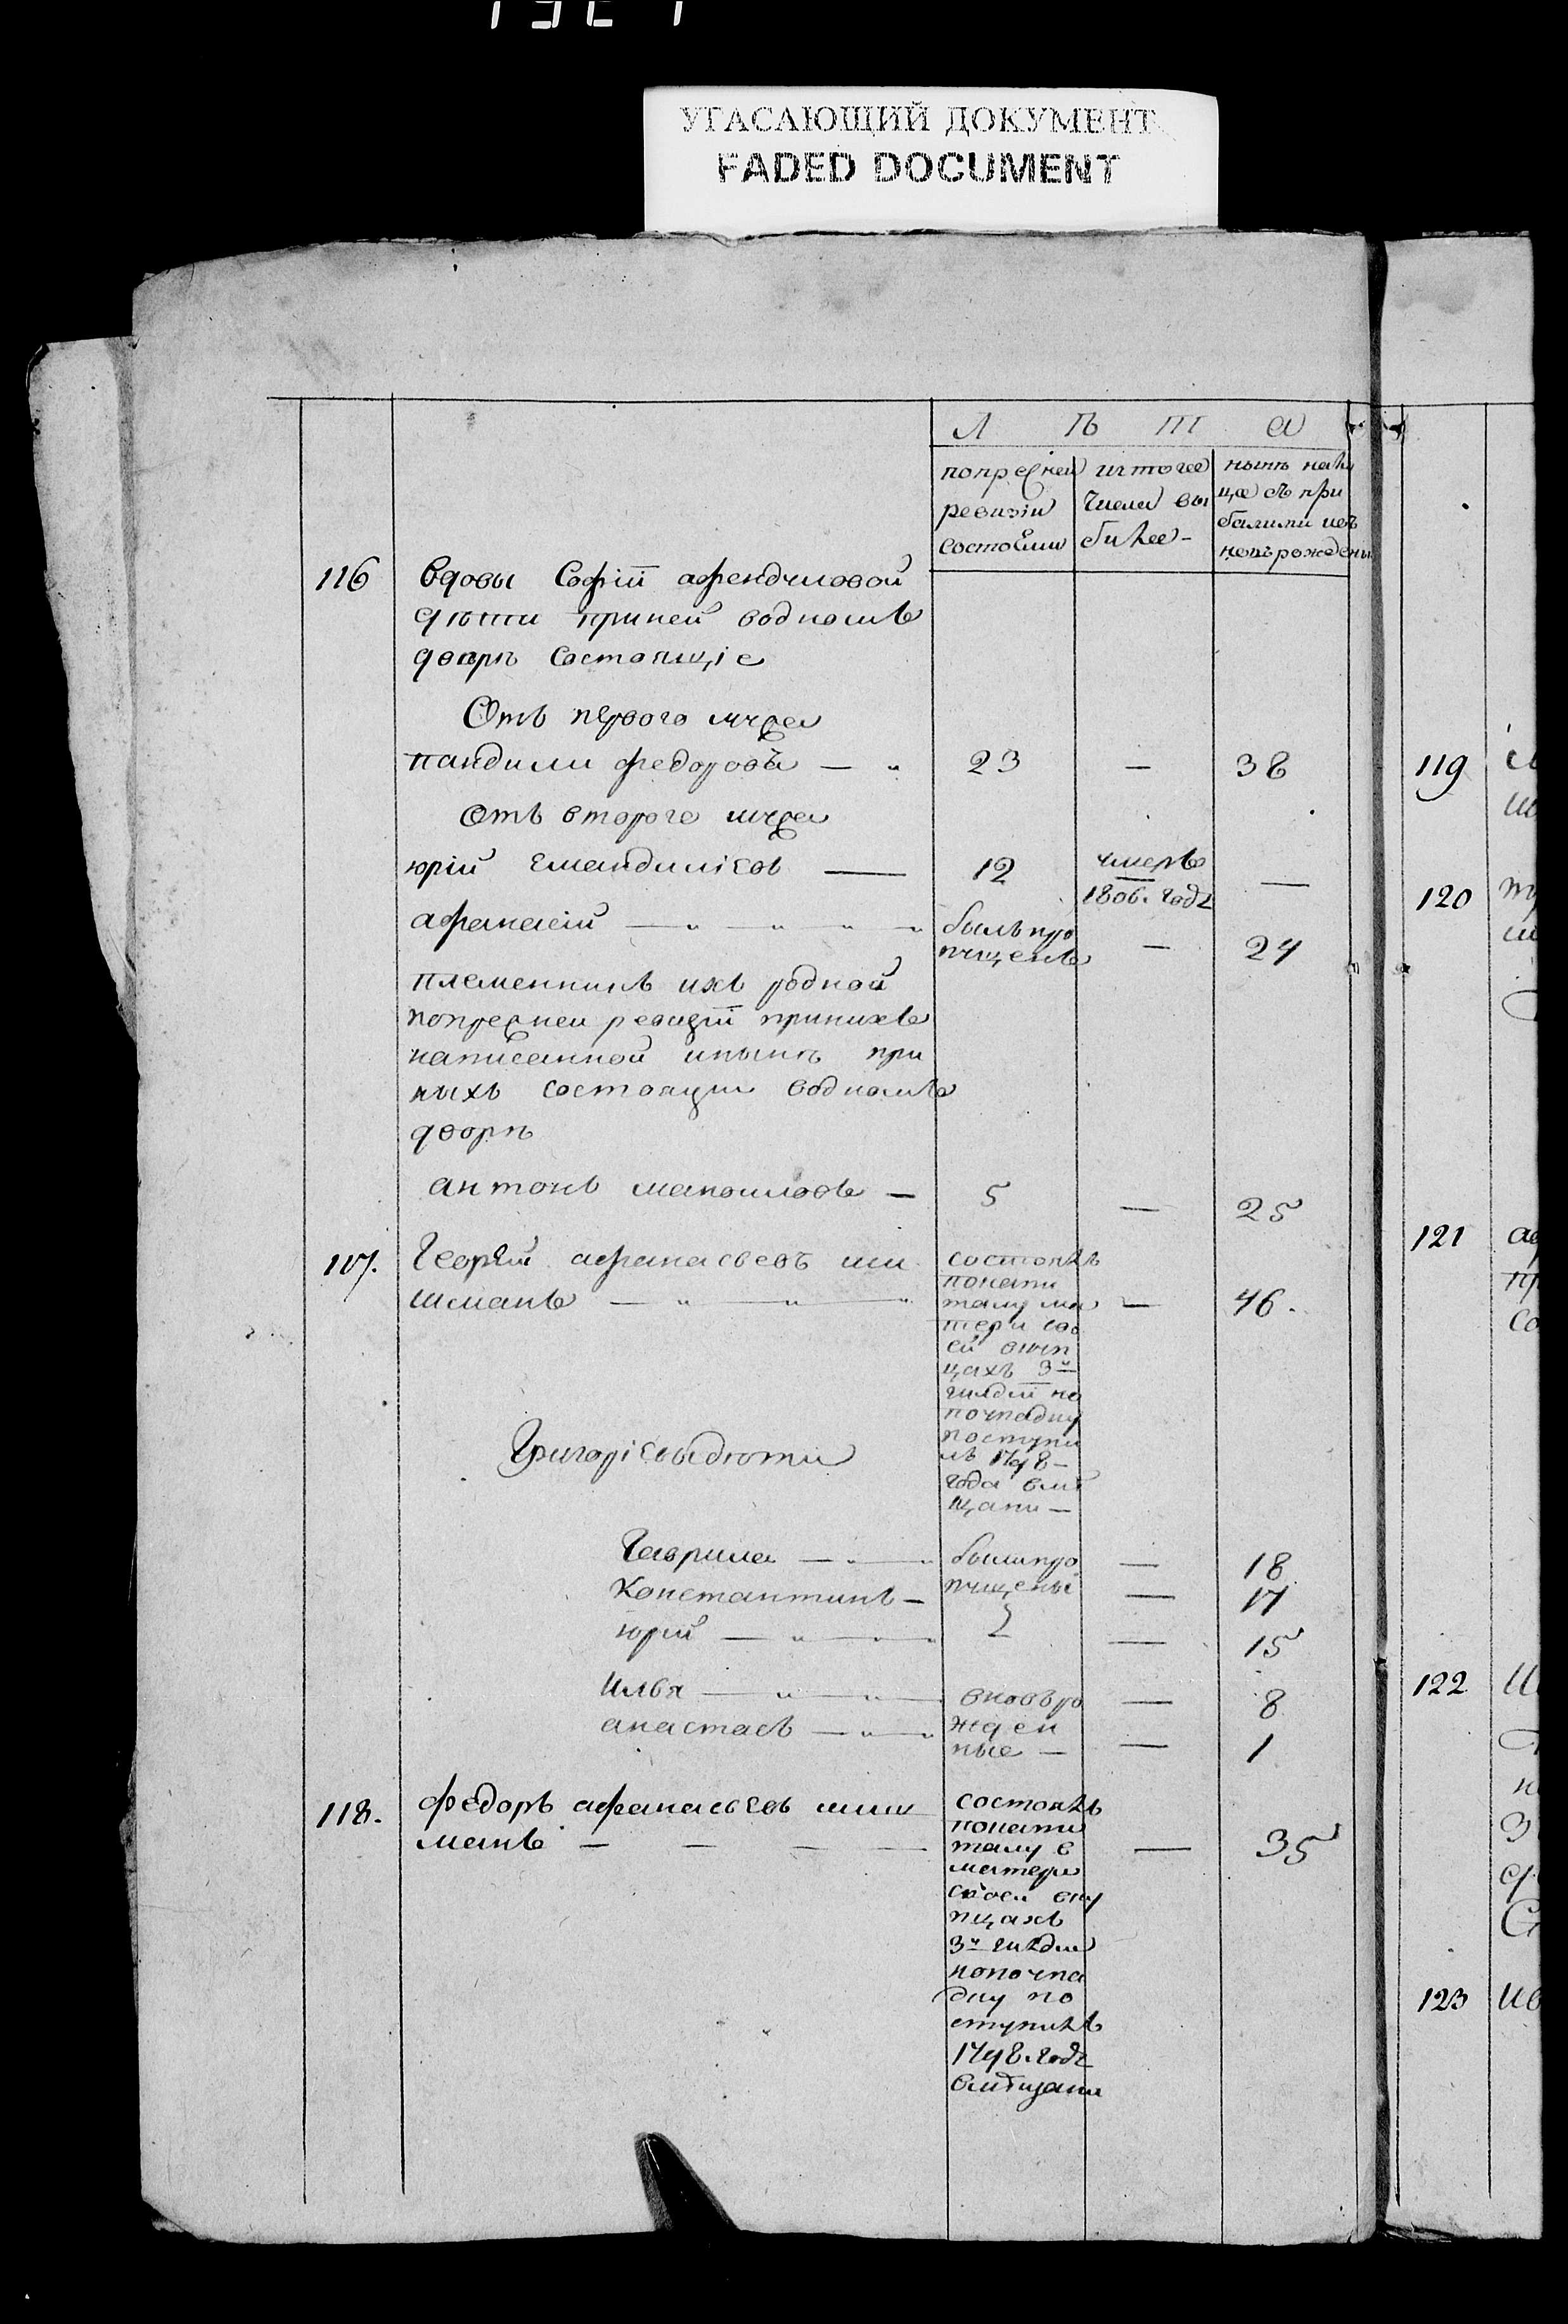 УГАСАЮЩИЙ ДОКУМЕНТ
FADED DOCUMENT
Л Ѣ т а
попрежней
ревизіи
состоями
істого
числа вы
было -
нынѣ нали
цо съ при
былыми
новърождены
116 вдовы Софіи афендуловой
дѣти приней водномъ
дворѣ состоящіе
Отъ перваго мужа
пандили федоровъ — „ 23 — 38
Отъ второго мужа
юрій емандиліковъ — 12 умеръ
1806. году —
афанасій — „ — „ — „ — „ былъ про
пущенъ — 24
племянникъ ихъ родной
попрежней ревизіи принихъ
написанной инынѣ при
ныхъ состоящи водномъ
дворѣ
антонъ маноиловъ — 5 — 25
117. Георгій афанасьевъ ши
шманъ — „ — „ — „ — 46.
состоялъ
понати
тому ма
тери сво
ей
цахъ 3й
гилдіи но
поупадку
поступи
лъ 1798 -
года вмѣ
щани —
Григоріевы дѣти
Гаврила — „ — „ были про — 18
Константинъ — пущены — 17
юрій — „ — „ — „ — 15
илья — „ — „ — вновъро — 8
анастасъ — „ — „ жден
ные — — 1
118. федоръ афанасьевъ шиш
манъ — — — — — 35
состоялъ
понати
тому в
матери
своей вку
пцахъ
3й гилдіи
нопоупа
дку по
ступилъ
1798. году
вмѣщани
119
120
121
122
123